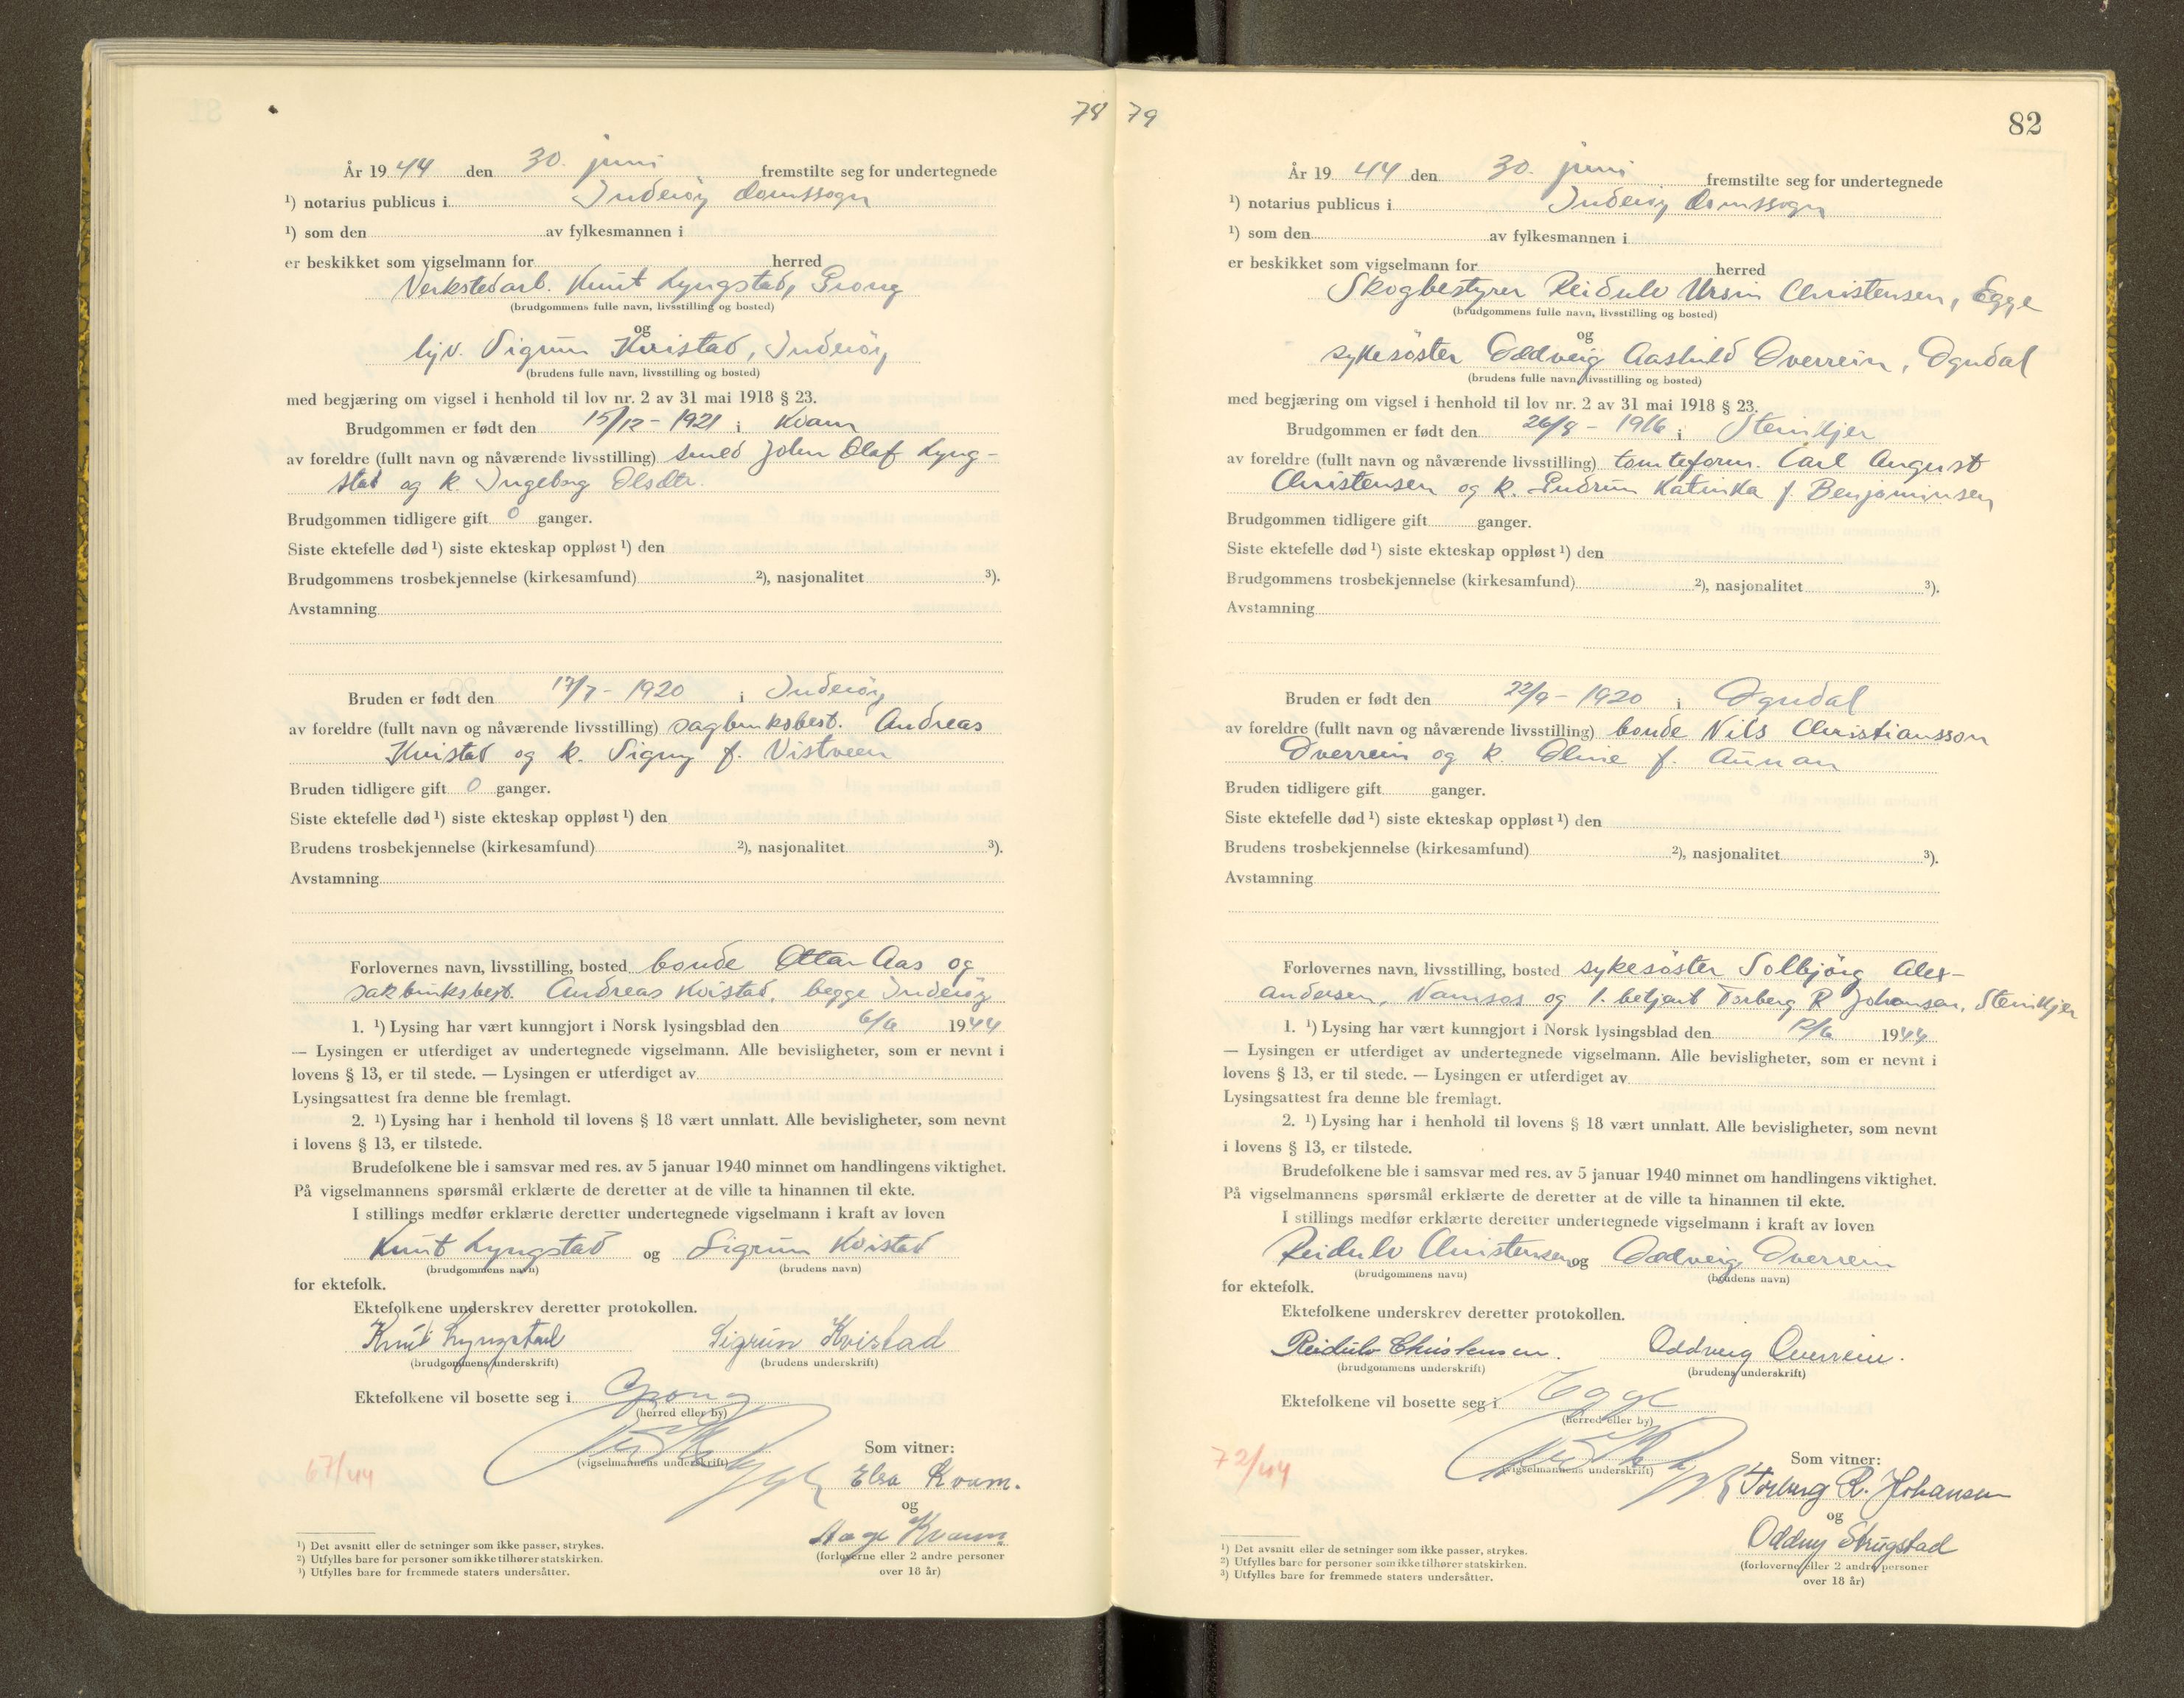 78
År 1944 den 30. juni fremstilte seg for undertegnede
¹) notarius publicus i Inderöy domssogn
¹) som den av fylkesmannen i
er beskikket som vigselmann for herred
Verkstedarb. Knut Lyngstad, Grong
(brudgommens fulle navn, livsstilling og bosted)
og
hjv. Sigrun Kvistad, Inderöy
(brudens fulle navn, livsstilling og bosted)
med begjæring om vigsel i henhold til lov nr. 2 av 31 mai 1918 § 23.
Brudgommen er født den 15/12 - 1921 i Kvam
av foreldre (fullt navn og nåværende livsstilling) smed John Olaf Lyng-
stad og k. Ingeborg Olsdtr.
Brudgommen tidligere gift 0 ganger.
Siste ektefelle død ¹) siste ekteskap oppløst ¹) den
Brudgommens trosbekjennelse (kirkesamfund) ²), nasjonalitet ³).
Avstamning
Bruden er født den 17/7 - 1920 i Inderöy
av foreldre (fullt navn og nåværende livsstilling) sagbruksbest. Andreas
Kvistad og k. Signy f. Vistveen
Bruden tidligere gift 0 ganger.
Siste ektefelle død ¹) siste ekteskap oppløst ¹) den
Brudens trosbekjennelse (kirkesamfund) ²), nasjonalitet ³).
Avstamning
Forlovernes navn, livsstilling, bosted bonde Ottar Aas og
sakbruksbest. Andreas Kvistad, begge Inderöy
1. ¹) Lysing har vært kunngjort i Norsk lysingsblad den 6/6 1944
— Lysingen er utferdiget av undertegnede vigselmann. Alle bevisligheter, som er nevnt i
lovens § 13, er til stede. — Lysingen er utferdiget av
Lysingsattest fra denne ble fremlagt.
2. ¹) Lysing har i henhold til lovens § 18 vært unnlatt. Alle bevisligheter, som nevnt
i lovens § 13, er tilstede.
Brudefolkene ble i samsvar med res. av 5 januar 1940 minnet om handlingens viktighet.
På vigselmannens spørsmål erklærte de deretter at de ville ta hinannen til ekte.
I stillings medfør erklærte deretter undertegnede vigselmann i kraft av loven
Knut Lyngstad og Sigrun Kvistad
(brudgommens navn) (brudens navn)
for ektefolk.
Ektefolkene underskrev deretter protokollen.
Knut Lyngstad Sigrun Kvistad
(brudgommens underskrift) (brudens underskrift)
Ektefolkene vil bosette seg i Grong
(herred eller by)
(vigselmannens underskrift)
Som vitner:
67/44
Elsa Kvam.
og
Aage Kvam
(forloverne eller 2 andre personer
over 18 år)
¹) Det avsnitt eller de setninger som ikke passer, strykes.
²) Utfylles bare for personer som ikke tilhører statskirken.
³) Utfylles bare for fremmede staters undersåtter.
79
82
År 1944 den 30. juni fremstilte seg for undertegnede
¹) notarius publicus i Inderöy domssogn
¹) som den av fylkesmannen i
er beskikket som vigselmann for herred
Skogbestyrer Reidulv Ursin Christensen, Egge
(brudgommens fulle navn, livsstilling og bosted)
og
sykesöster Oddveig Aashild Overrein, Ogndal
(brudens fulle navn, livsstilling og bosted)
med begjæring om vigsel i henhold til lov nr. 2 av 31 mai 1918 § 23.
Brudgommen er født den 26/8 - 1916 i Steinkjer
av foreldre (fullt navn og nåværende livsstilling) tomteform. Carl August
Christensen og k. Gudrun Katinka f. Benjaminsen
Brudgommen tidligere gift ganger.
Siste ektefelle død ¹) siste ekteskap oppløst ¹) den
Brudgommens trosbekjennelse (kirkesamfund) ²), nasjonalitet ³).
Avstamning
Bruden er født den 22/9 - 1920 i Ogndal
av foreldre (fullt navn og nåværende livsstilling) bonde Nils Christiansson
Overrein og k. Oline f. Aunan
Bruden tidligere gift ganger.
Siste ektefelle død ¹) siste ekteskap oppløst ¹) den
Brudens trosbekjennelse (kirkesamfund) ²), nasjonalitet ³).
Avstamning
Forlovernes navn, livsstilling, bosted sykesöster Solbjörg Alex-
andersen, Namsos og 1. betjent Torberg R Johansen, Steinkjer
1. ¹) Lysing har vært kunngjort i Norsk lysingsblad den 12/6 1944
— Lysingen er utferdiget av undertegnede vigselmann. Alle bevisligheter, som er nevnt i
lovens § 13, er til stede. — Lysingen er utferdiget av
Lysingsattest fra denne ble fremlagt.
2. ¹) Lysing har i henhold til lovens § 18 vært unnlatt. Alle bevisligheter, som nevnt
i lovens § 13, er tilstede.
Brudefolkene ble i samsvar med res. av 5 januar 1940 minnet om handlingens viktighet.
På vigselmannens spørsmål erklærte de deretter at de ville ta hinannen til ekte.
I stillings medfør erklærte deretter undertegnede vigselmann i kraft av loven
Reidulv Christensen og Oddveig Overrein
(brudgommens navn) (brudens navn)
for ektefolk.
Ektefolkene underskrev deretter protokollen.
Reidulv Christensen. Oddveig Overrein.
(brudgommens underskrift) (brudens underskrift)
Ektefolkene vil bosette seg i Egge
(herred eller by)
(vigselmannens underskrift)
Som vitner:
72/44
Torberg R. Johansen
og
Oddny Strugstad
(forloverne eller 2 andre personer
over 18 år)
¹) Det avsnitt eller de setninger som ikke passer, strykes.
²) Utfylles bare for personer som ikke tilhører statskirken.
³) Utfylles bare for fremmede staters undersåtter.